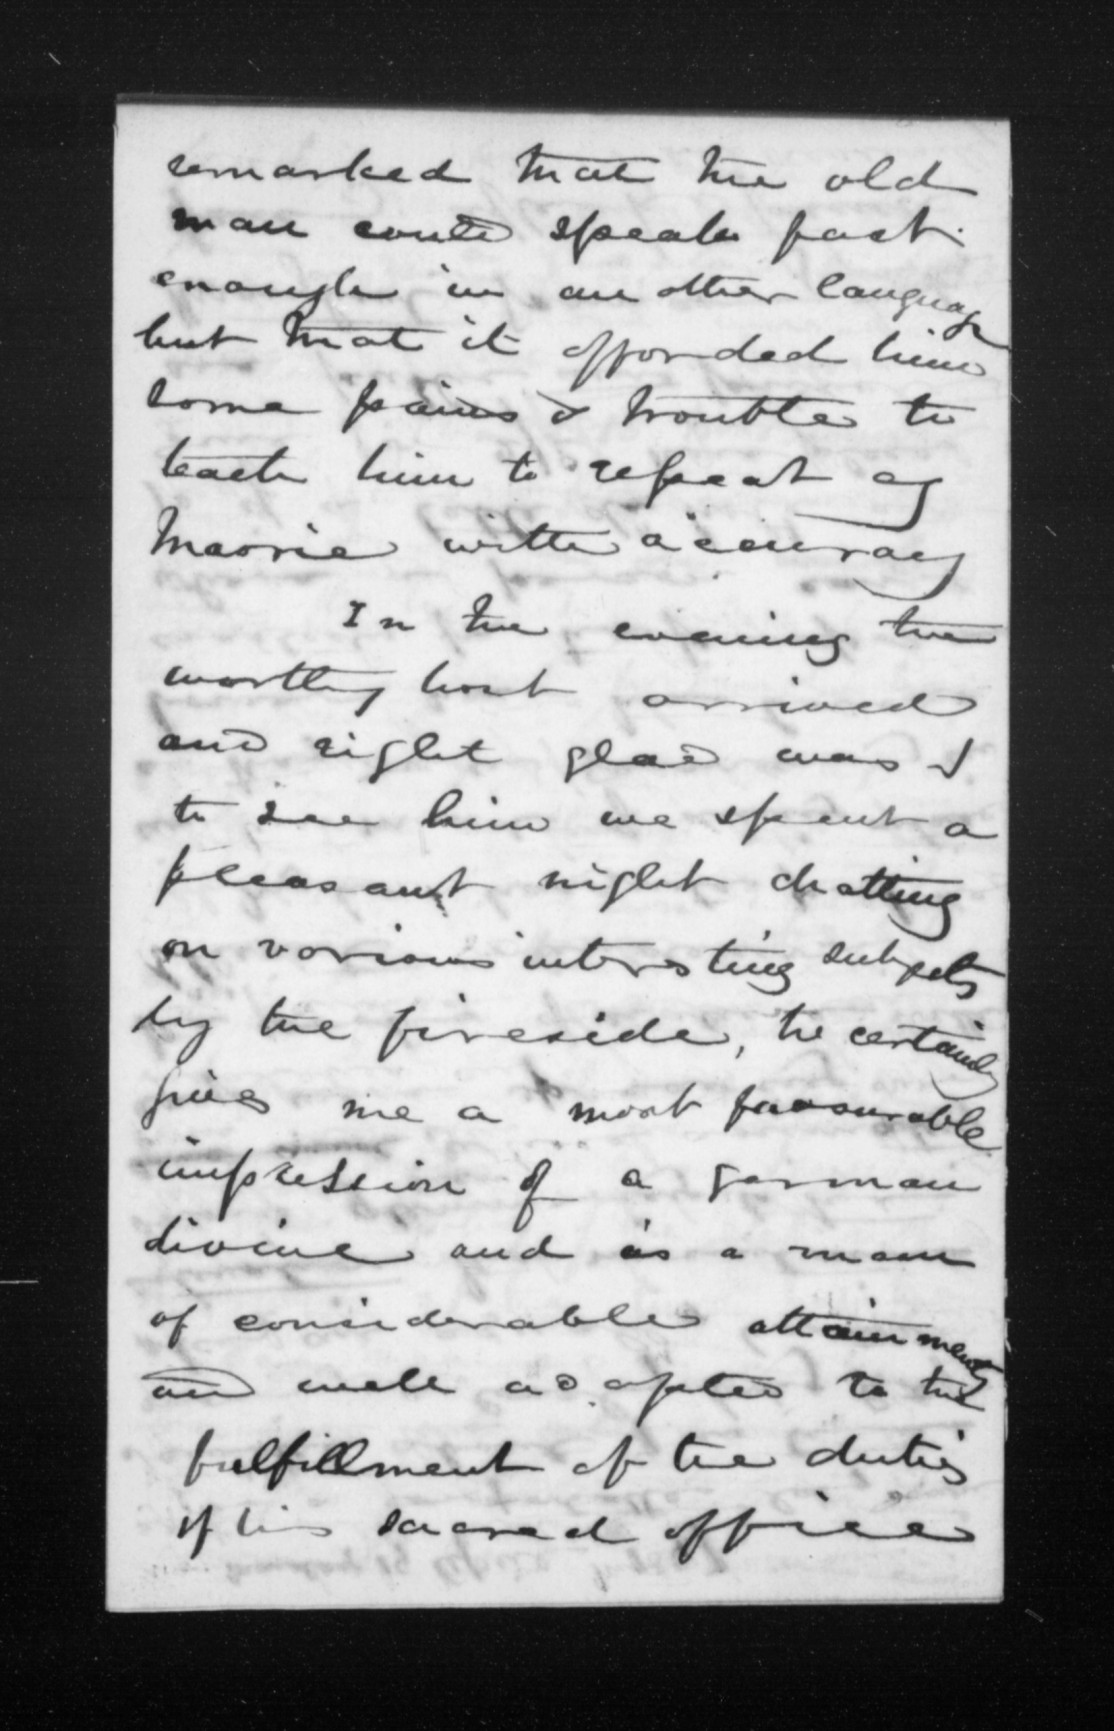 remarked that the old
man could speak fast
enough in an other language
but that it afforded him
some pains & trouble to
teach him to repeat
Maorie with accuracy
In the evening the
worthy host arrived
and right glad was I
to see him we spent a
pleasant night chatting
on various interesting subjects
by the fireside, he certainly
gives me a most favourable
impression of a german
divine and is a man
of considerable attainments
and well adapted to the
fulfillment of the duties
of his sacred office